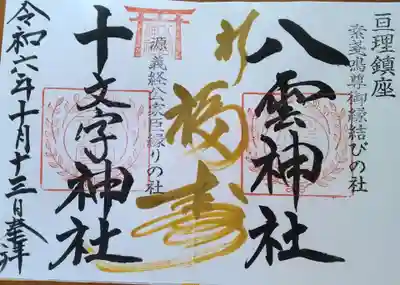 亘理鎮座
素戔鳴尊御縁結びの社
八雲神社
福寿
源義経公家臣縁りの社
十文字神社
令和六年十月十三日奉拝